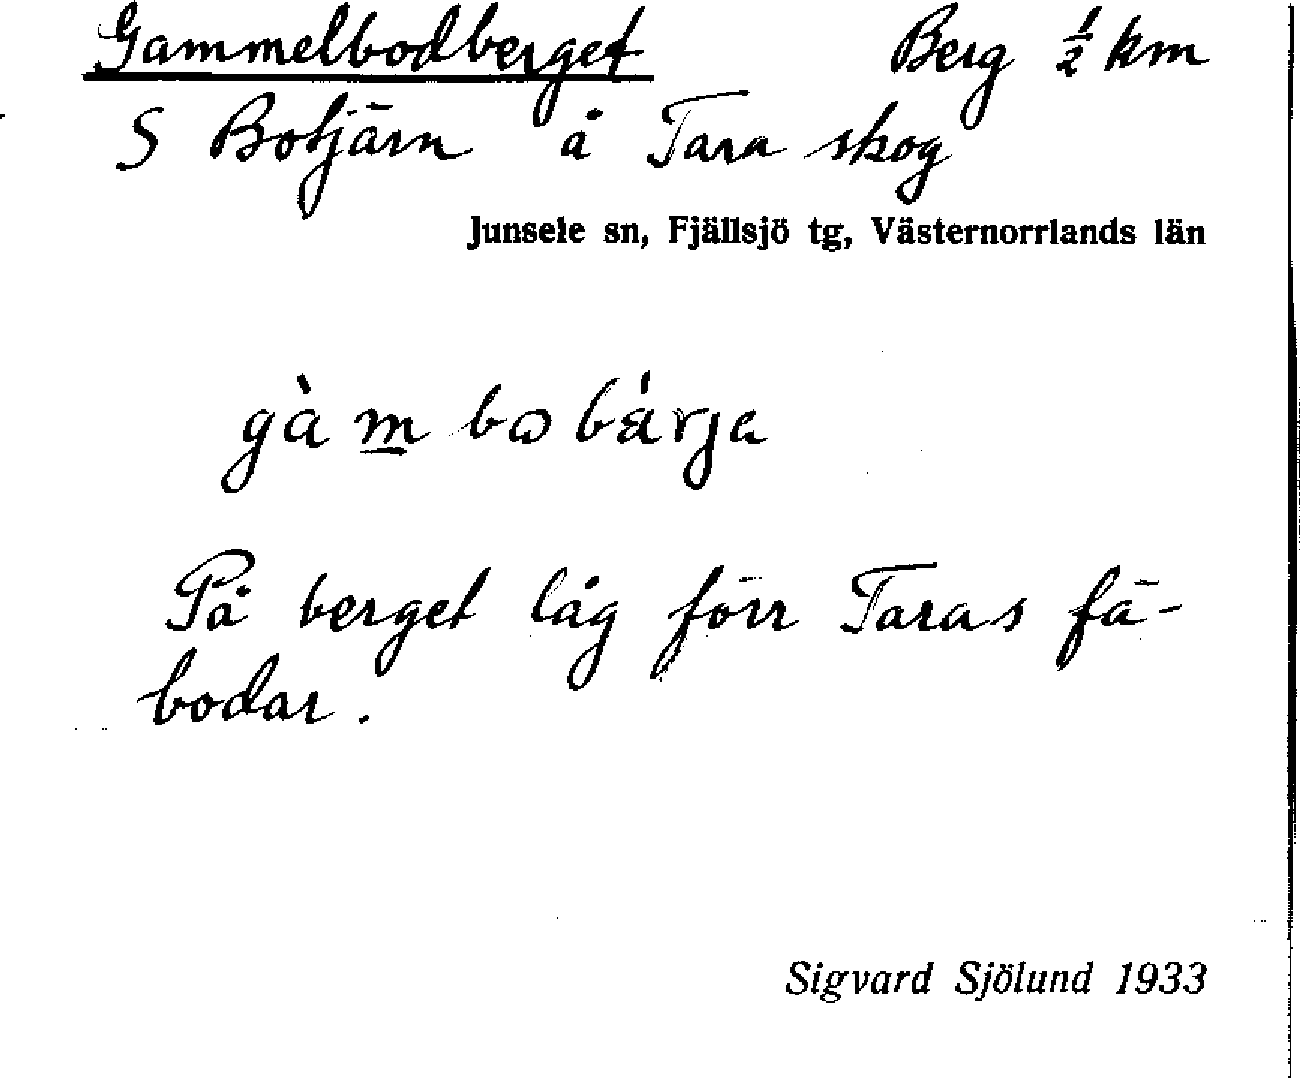 Gammelbodberget Berg ½ km
S Botjärn å Tara skog
Junsele sn, Fjällsjö tg, Västernorrlands län
gàm̲ bω bárja
På berget låg förr Taras fä-
bodar.
Sigvard Sjölund 1933